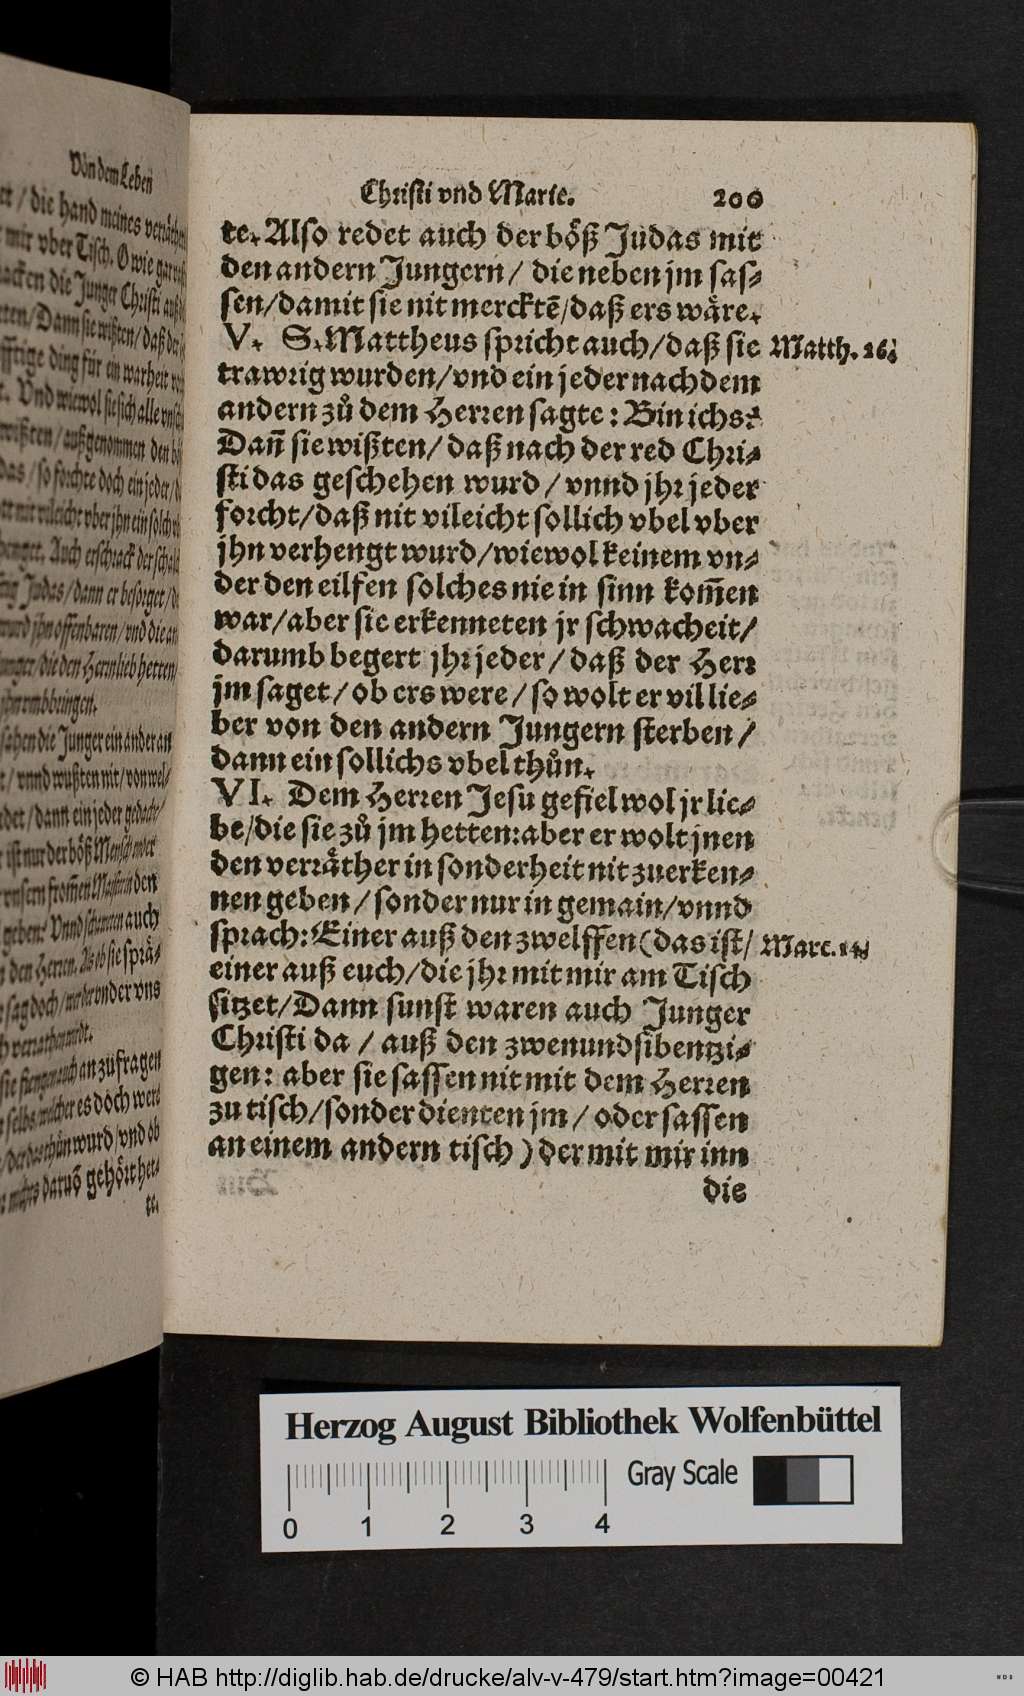 Von dem Leben
die hand meines
mir vber Tisch. O wie gar
die Junger Christi
Dann sie wißten/daß
ding für ein warheit
Vnd wiewol sie sich alle
außgenommen den
so forchte doch ein jeder
vber jhn ein solch
Auch erschrack der
Judas/dann er besorget
jhn offenbaren/vnd die
die den Herrn lieb hetten
vmbbringen.
sahen die Junger ein ander an
vnnd wußten nit/von wel-
dann ein jeder gedacht/
ist nur der böß Mensch
vnsern from̃en Maystern den
geben? Vnnd auch
den Herren. Als ob sie sprä-
sag doch/ vnder vns
verrathen wirdt.
sie auch an zu fragen
welcher es doch wert
der das thůn wurd/vnd ob
daruõ gehört het-
te.
Christi vnd Marie. 200
te. Also redet auch der böß Judas mit
den andern Jungern/ die neben jm sas-
sen/damit sie nit merckte͂/daß ers wäre.
V. S. Mattheus spricht auch/daß sie
Matth. 26.
trawrig wurden/vnd ein jeder nach dem
andern zů dem Herren sagte: Bin ichs?
Dañ sie wißten/ daß nach der red Chri-
sti das geschehen wurd / vnnd jhr jeder
forcht/daß nit vileicht sollich vbel vber
jhn verhengt wurd/wiewol keinem vn-
der den eilfen solches nie in sinn kom̃en
war/aber sie erkenneten jr schwacheit/
darumb begert jhr jeder/ daß der Herr
jm saget/ ob ers were/ so wolt er vil lie-
ber von den andern Jungern sterben/
dann ein sollichs vbel thůn.
VI. Dem Herren Jesu gefiel wol jr lie-
be/die sie zů jm hetten: aber er wolt jnen
den verräther in sonderheit nit zuerken-
nen geben/ sonder nur in gemain/vnnd
sprach: Einer auß den zwelffen (das ist/
Marc. 14.
einer auß euch/die jhr mit mir am Tisch
sitzet/Dann sunst waren auch Junger
Christi da / auß den zwenundsibentzi-
gen: aber sie sassen nit mit dem Herren
zu tisch/sonder dienten jm/ oder sassen
an einem andern tisch ) der mit mir inn
die
Herzog August Bibliothek Wolfenbüttel
Gray Scale
0 1 2 3 4
© HAB http://diglib.hab.de/drucke/alv-v-479/start.htm?image=00421